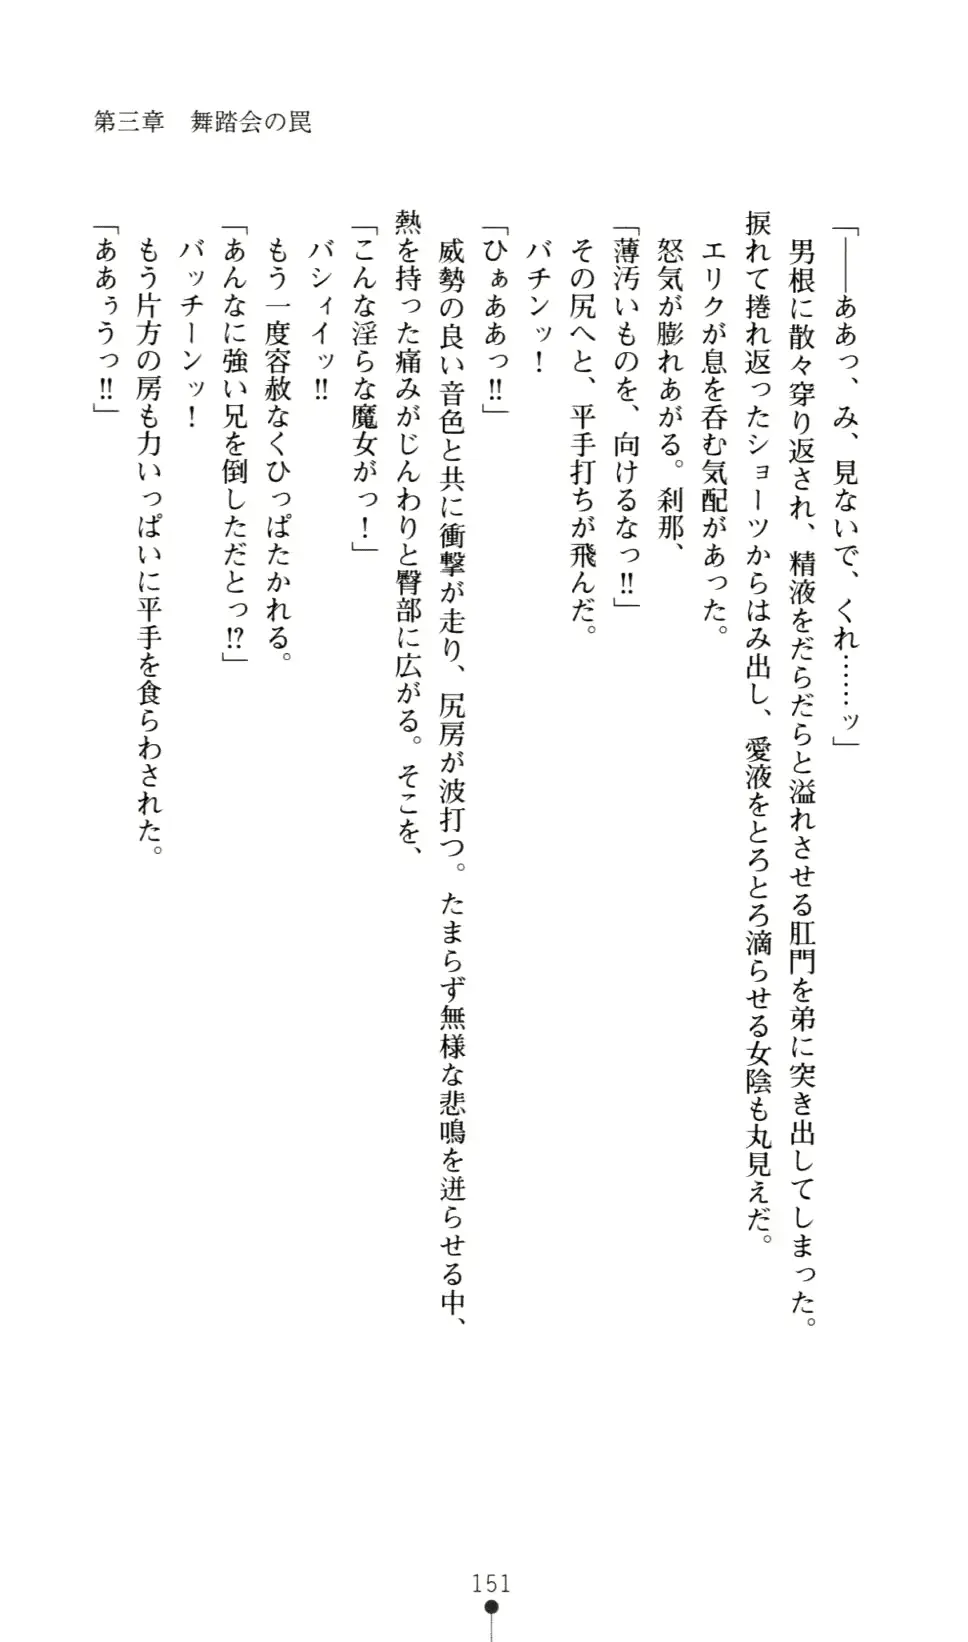 第三章　舞踏会の罠
「――ああっ、み、見ないで、くれ……ッ」
男根に散々穿り返され、精液をだらだらと溢れさせる肛門を弟に突き出してしまった。
捩れて捲れ返ったショーツからはみ出し、愛液をとろとろ滴らせる女陰も丸見えだ。
エリクが息を呑む気配があった。
怒気が膨れあがる。刹那、
「薄汚いものを、向けるなっ‼」
その尻へと、平手打ちが飛んだ。
バチンッ！
「ひぁああっ‼」
威勢の良い音色と共に衝撃が走り、尻房が波打つ。たまらず無様な悲鳴を迸らせる中、
熱を持った痛みがじんわりと臀部に広がる。そこを、
「こんな淫らな魔女がっ！」
バシィイッ‼
もう一度容赦なくひっぱたかれる。
「あんなに強い兄を倒しただとっ⁉」
バッチーンッ！
もう片方の房も力いっぱいに平手を食らわされた。
「ああぅうっ‼」
151